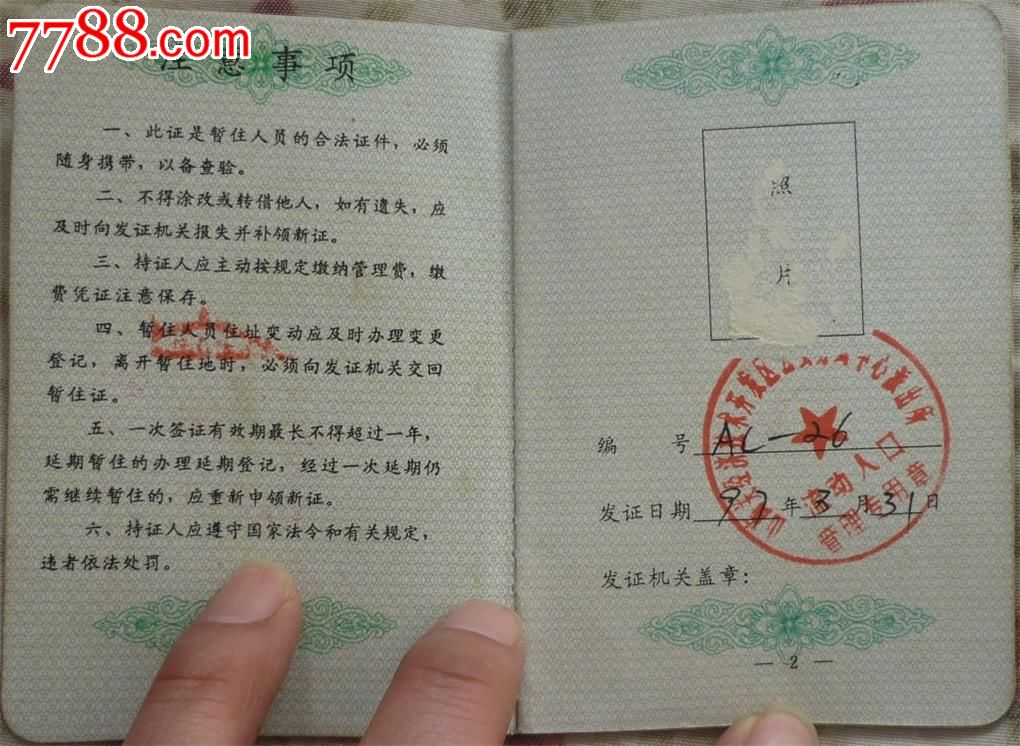 7788.com
注意事项
一、此证是暂住人员的合法证件，必须
随身携带，以备查验。
二、不得涂改或转借他人，如有遗失，应
及时向发证机关报失并补领新证。
三、持证人应主动按规定缴纳管理费，缴
费凭证注意保存。
四、暂住人员住址变动应及时办理变更
登记，离开暂住地时，必须向发证机关交回
暂住证。
五、一次签证有效期最长不得超过一年，
延期暂住的办理延期登记，经过一次延期仍
需继续暂住的，应重新申领新证。
六、持证人应遵守国家法令和有关规定，
违者依法处罚。
照
片
流动人口
管理专用章
编 号 AC-26
发证日期 97年3月31日
发证机关盖章：
— 2 —